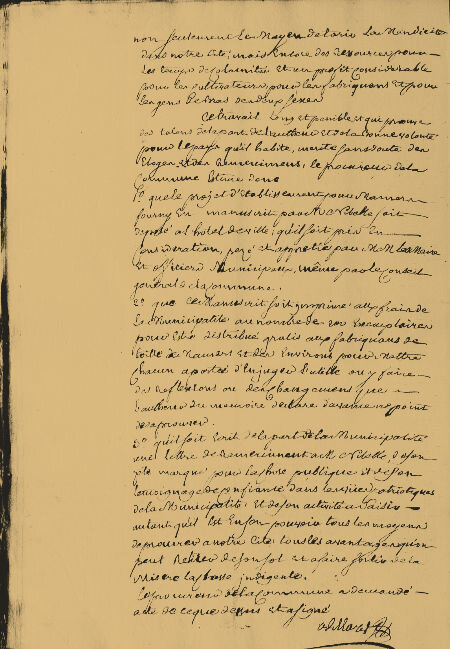 non seulement le moyen de tarir la mendicité
dans notre cité; mais encore des ressources pour
les temps de calamités et un profit considérable
pour les cultivateurs pour les fabriquans et pour
les gens
Ce travail long et penible et qui prouve
des talens de la part de l'auteur et de la bonne volonté
pour le pays qu'il habite, merite sans doute des
Eloges et des Remerciemens, le procureur de la
Commune Estime donc
1º que le projet d'Etablissement pour
fourny En manuscrit par M. soit
deposé a l'hotel de ville; qu'il soit pris En
Consideration, pezé et apprecié par M.M. les Maire
Et officiers Municipaux, même par le Conseil
general de la Commune.
2º que ce Manuscrit soit imprimé aux frais de
la Municipalité au nombre de Exemplaires
pour Etre distribué gratis aux fabriquans de
et des Environs pour mettre
chacun a portée d'En juger l'utilité ou y faire
des Reflections ou des changemens que
l'autheur du memoire declare d'avance ne point
desaprouver.
3º qu'il soit Ecrit de la part de la Municipalité
une lettre de Remerciment a M. de son
zele marqué pour la chose publique et de son
de confiance dans les vües patriotiques
de la Municipalité, et de son activité a saisir
autant qu'il Est En son pouvoir tous les moyens
de procurer a notre Cité tous les avantages qu'on
peut Retirer de son sol et a faire sortir de la
Misere la classe indigente.
Le procureur de la Commune a demandé
acte de ce que dessus et a signé